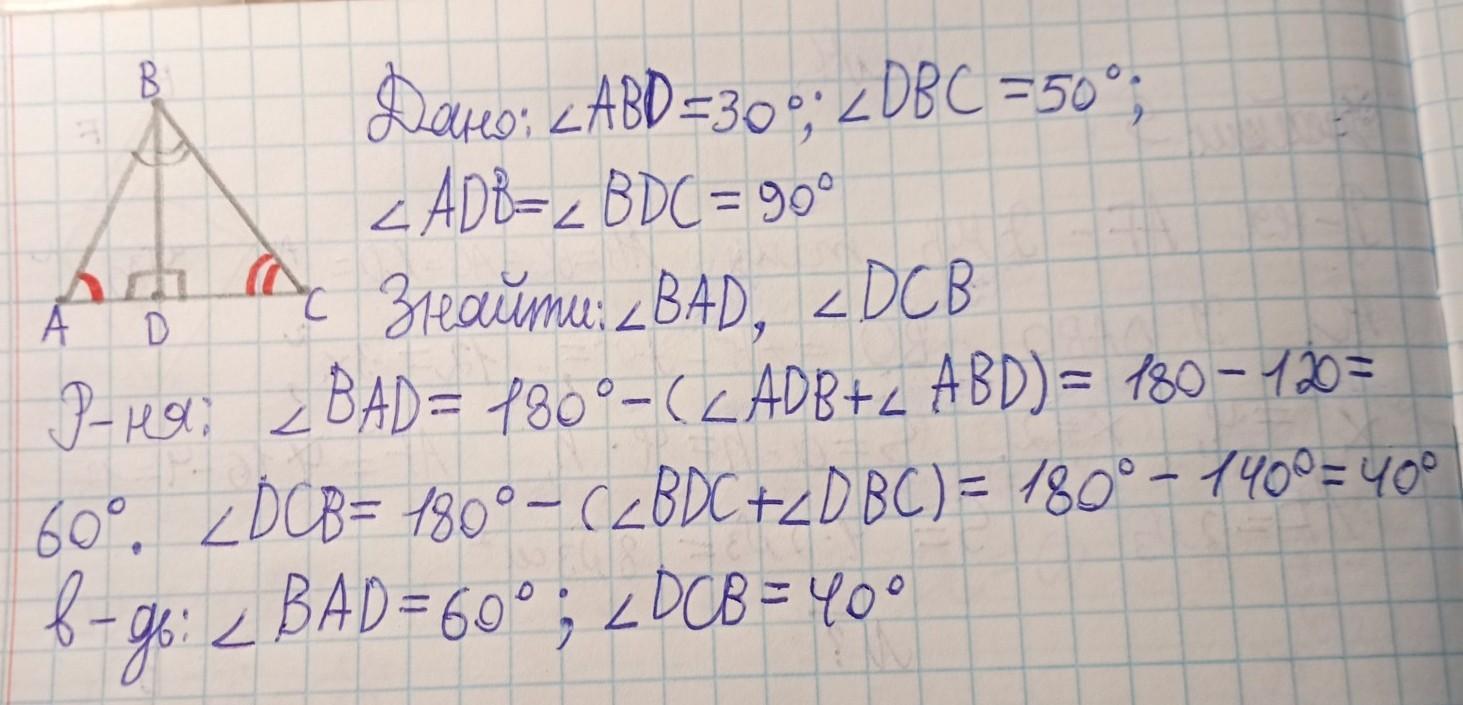 B
Дано: ∠ABD=30°; ∠DBC=50°;
∠ADB=∠BDC=90°
A D C
Знайти: ∠BAD, ∠DCB
Р-ня: ∠BAD=180°-(∠ADB+∠ABD)=180-120=
60°. ∠DCB=180°-(∠BDC+∠DBC)=180°-140°=40°
в-дь: ∠BAD=60°; ∠DCB=40°